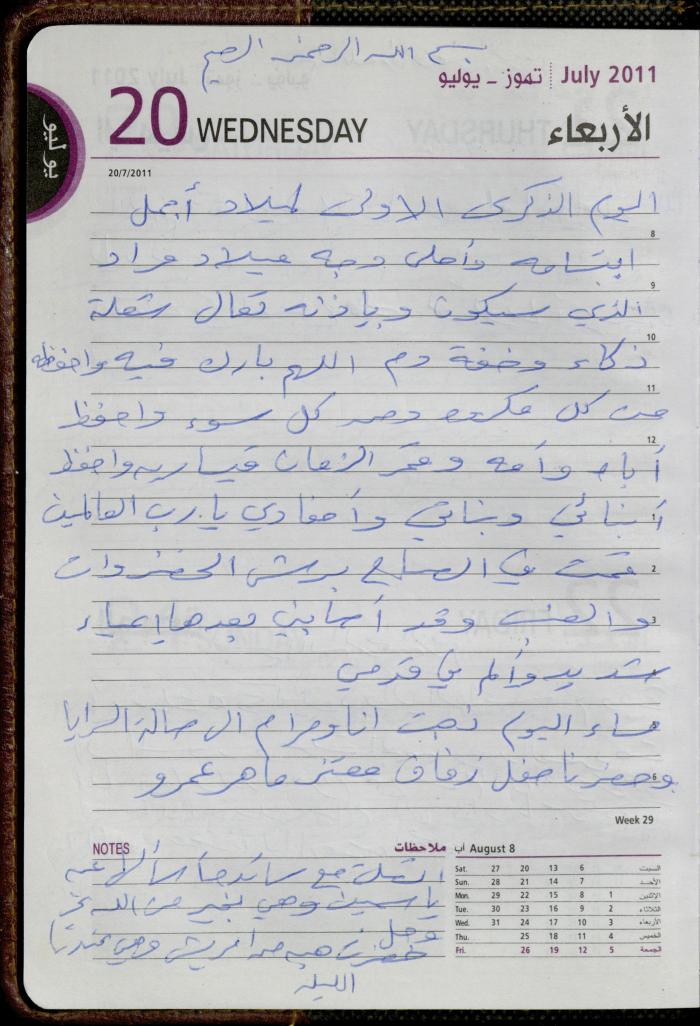 بسم الله الرحمن الرحيم
July 2011 تموز - يوليو
20 WEDNESDAY الأربعاء
يوليو
20/7/2011
اليوم الذكرى الاولى لميلاد أجمل
8
ابتسامه وأحلى وجه ميلاد مراد
9
الذي سيكون وبإذنه تعالى شعلة
10
ذكاء وخفة دم اللهم بارك فيه واحفظه
11
من كل مكروه ومن كل سوء واحفظ
12
أباه وأمه وقمر الزمان قيساريه واحفظ
أبنائي وبناتي وأحفادي يا رب العالمين
1
قمت في الصباح برش الخضروات
2
والعنب وقد أصابني بعدها إعياء
3
شديد وألم في قدمي
مساء اليوم ذهبت انا ومرام الى صالة السرايا
5
وحضرنا حفل زفاف معتز ماهر عمرو
6
Week 29
NOTES ملاحظات
اتصلت مع سائدة أسألها عن
ياسمين وهي بخير من الله عز
وجل
حضرت هبه من أمريش وهي عندنا
الليلة
August 8 آب
Sat. 27 20 13 6 السبت
Sun. 28 21 14 7 الأحد
Mon. 29 22 15 8 1 الاثنين
Tue. 30 23 16 9 2 الثلاثاء
Wed. 31 24 17 10 3 الأربعاء
Thu. 25 18 11 4 الخميس
Fri. 26 19 12 5 الجمعة